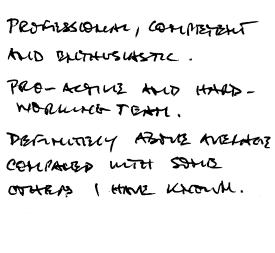 PROFESSIONAL, COMPETENT
AND ENTHUSIASTIC.
PRO-ACTIVE AND HARD-
WORKING TEAM.
DEFINITELY ABOVE AVERAGE
COMPARED WITH SOME
OTHERS I HAVE KNOWN.